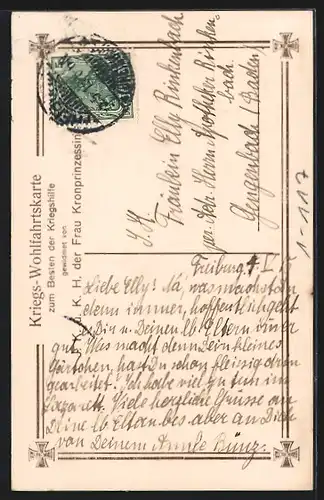 Kriegs-Wohlfahrtskarte
zum Besten der Kriegshilfe
gewidmet von
J. K. u. K. H. der Frau Kronprinzessin
I. H.
Fräulein Elly Rinkenbach
per Adr. Herrn Apotheker Rinken
bach.
Gengenbach (Baden)
1-117
Freiburg, 4. V. 15
Liebe Elly! Na, was machst du
denn immer, hoffentlich geht
es Dir u. Deinen lb. Eltern immer
gut. Was macht denn Dein kleines
Gärtchen, hast Du schon fleissig drin
gearbeitet. Ich habe viel zu tun im
Lazarett. Viele herzliche Grüsse an
Deine lb Eltern bes. aber an Dich
von Deinem Bünz.